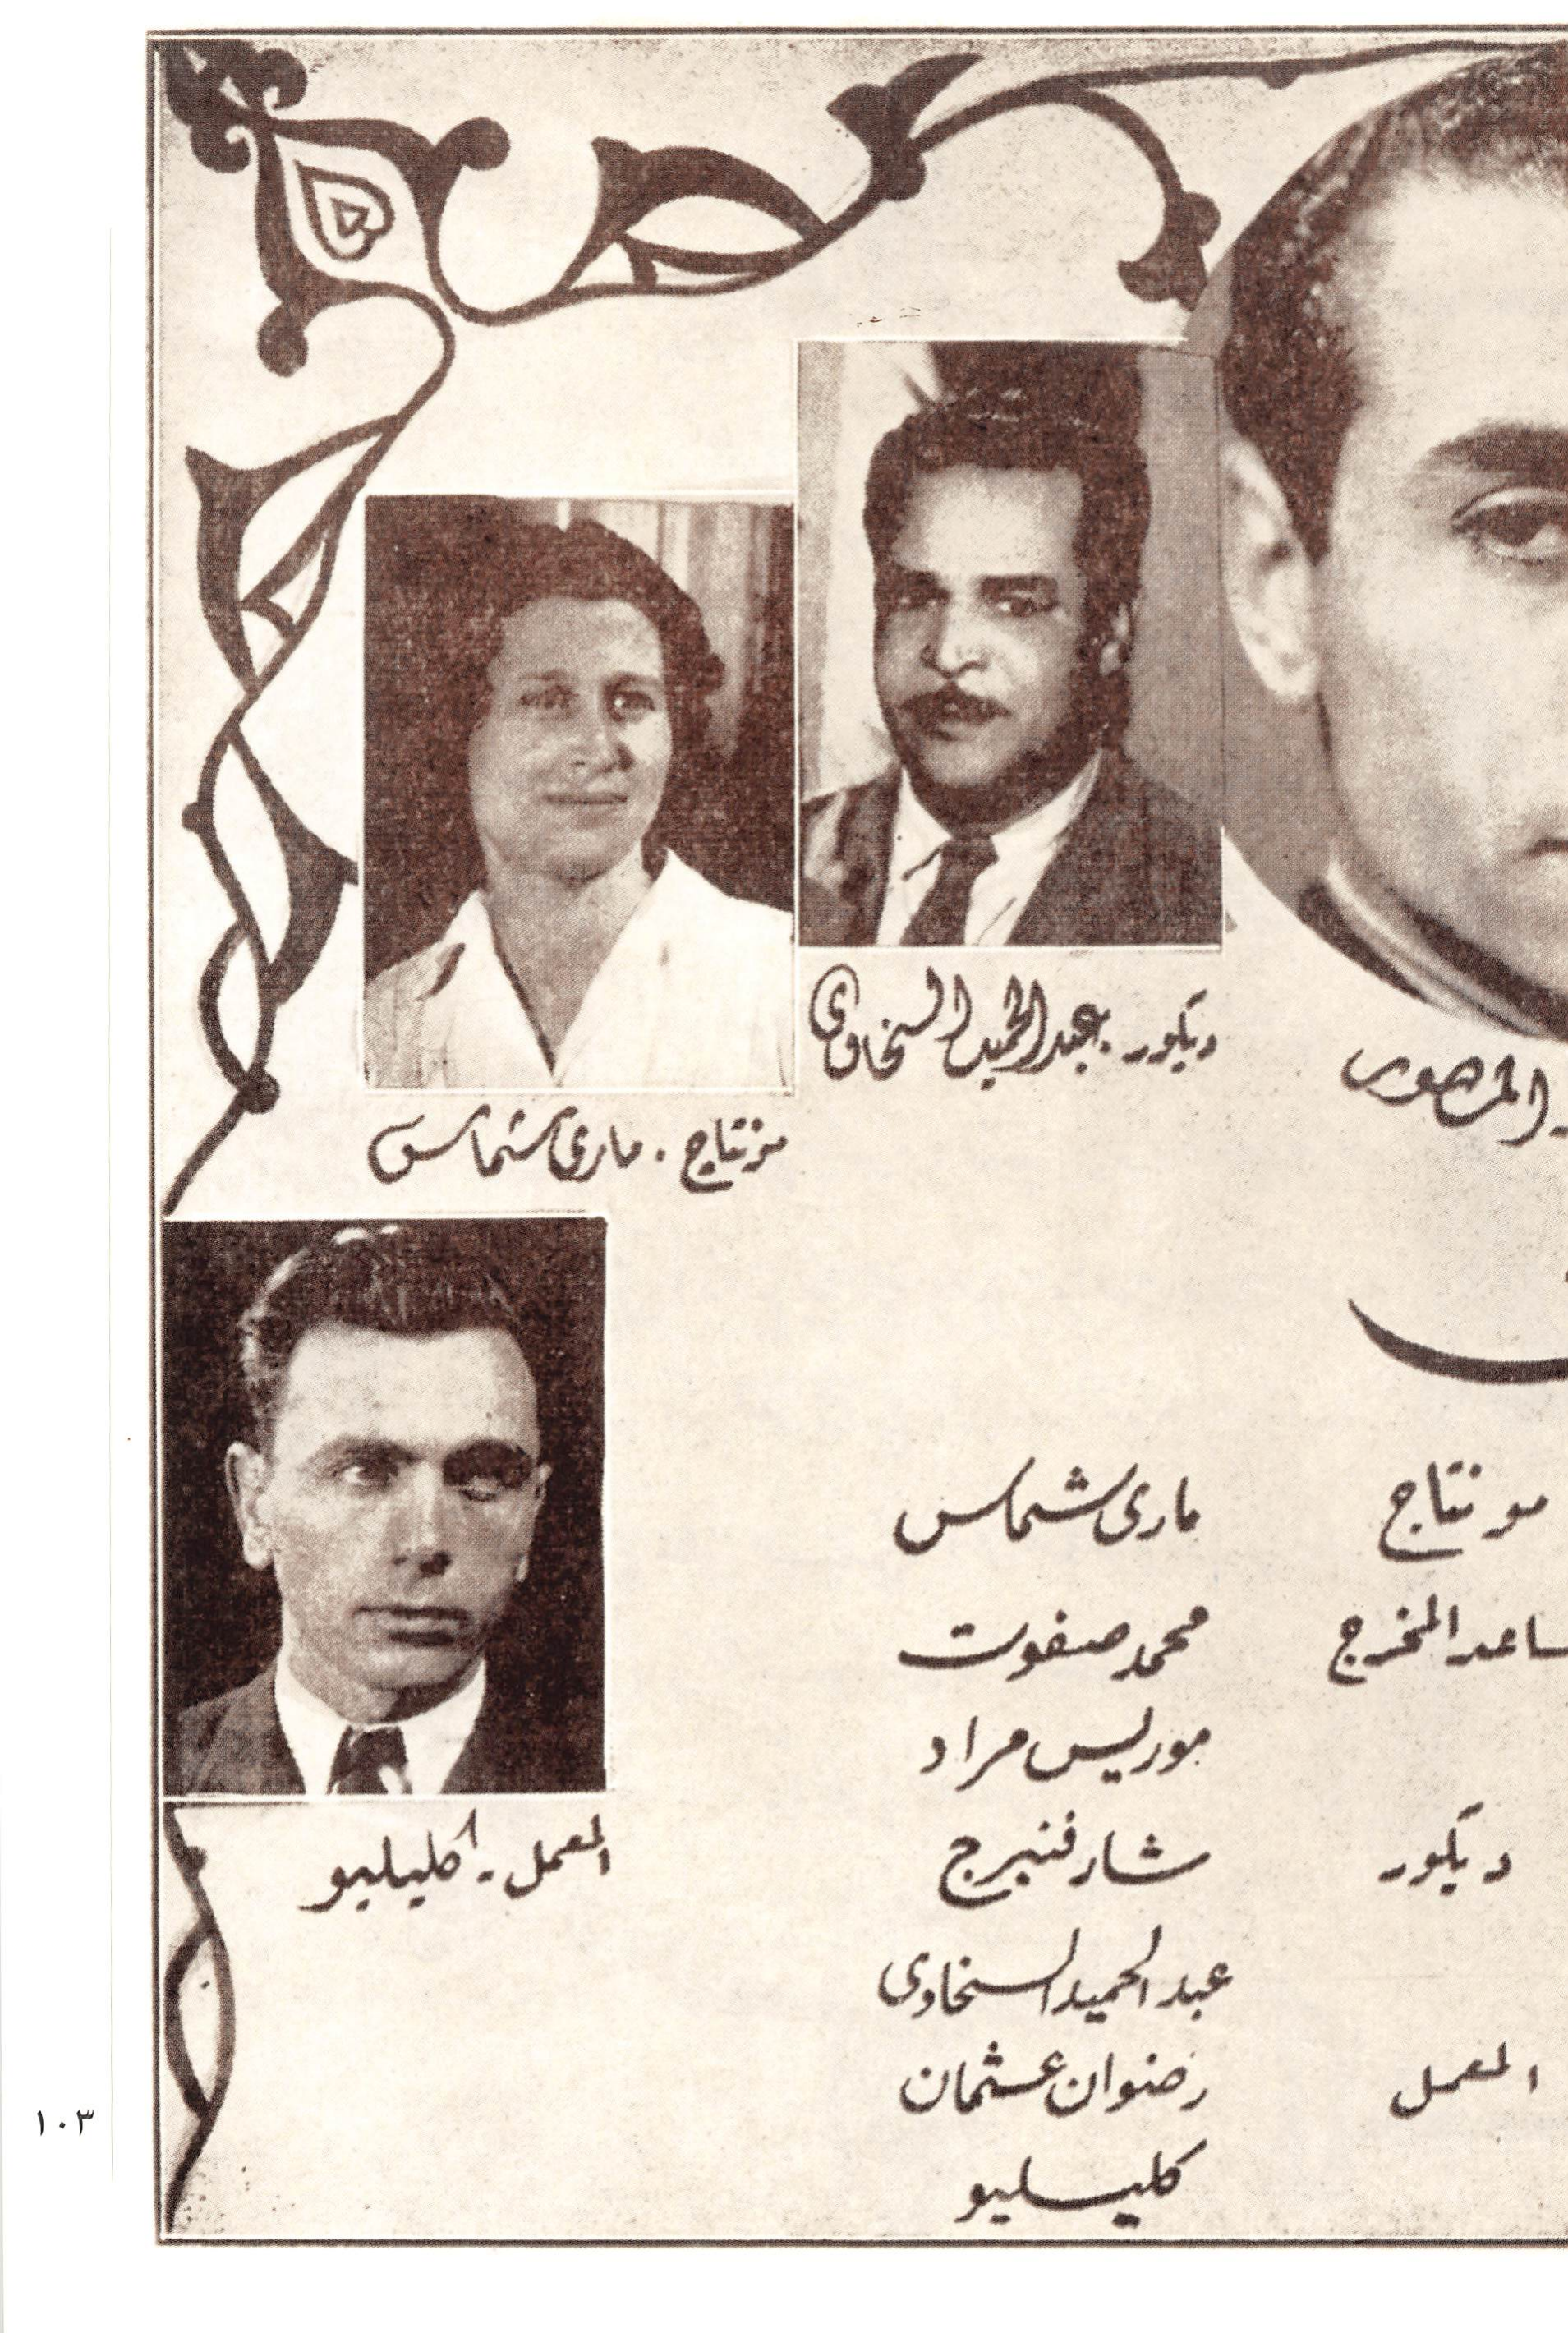 ديكور. عبد الحميد السخاوى
مونتاج. مارى شماس
المعمل - كليليو
مونتاج مارى شماس
ساعد المخرج محمد صفوت
موريس مراد
ديكور شارفنبرج
عبد الحميد السخاوى
المعمل رضوان عثمان
كليليو
١٠٣